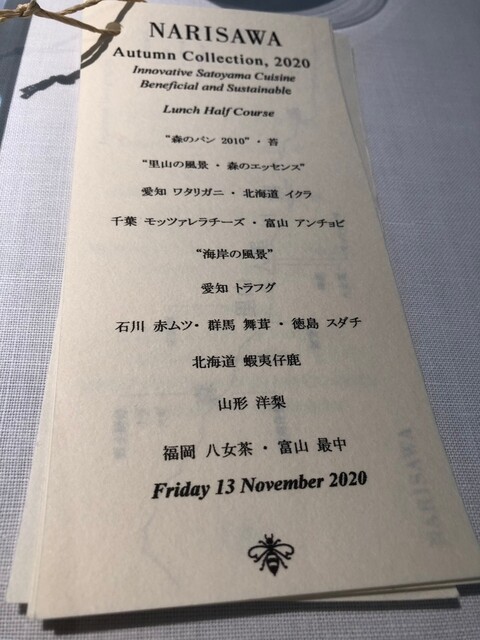 NARISAWA
Autumn Collection, 2020
Innovative Satoyama Cuisine
Beneficial and Sustainable
Lunch Half Course
“森のパン 2010”・苔
“里山の風景・森のエッセンス”
愛知 ワタリガニ・北海道 イクラ
千葉 モッツァレラチーズ・富山 アンチョビ
“海岸の風景”
愛知 トラフグ
石川 赤ムツ・群馬 舞茸・徳島 スダチ
北海道 蝦夷仔鹿
山形 洋梨
福岡 八女茶・富山 最中
Friday 13 November 2020
NARISAWA